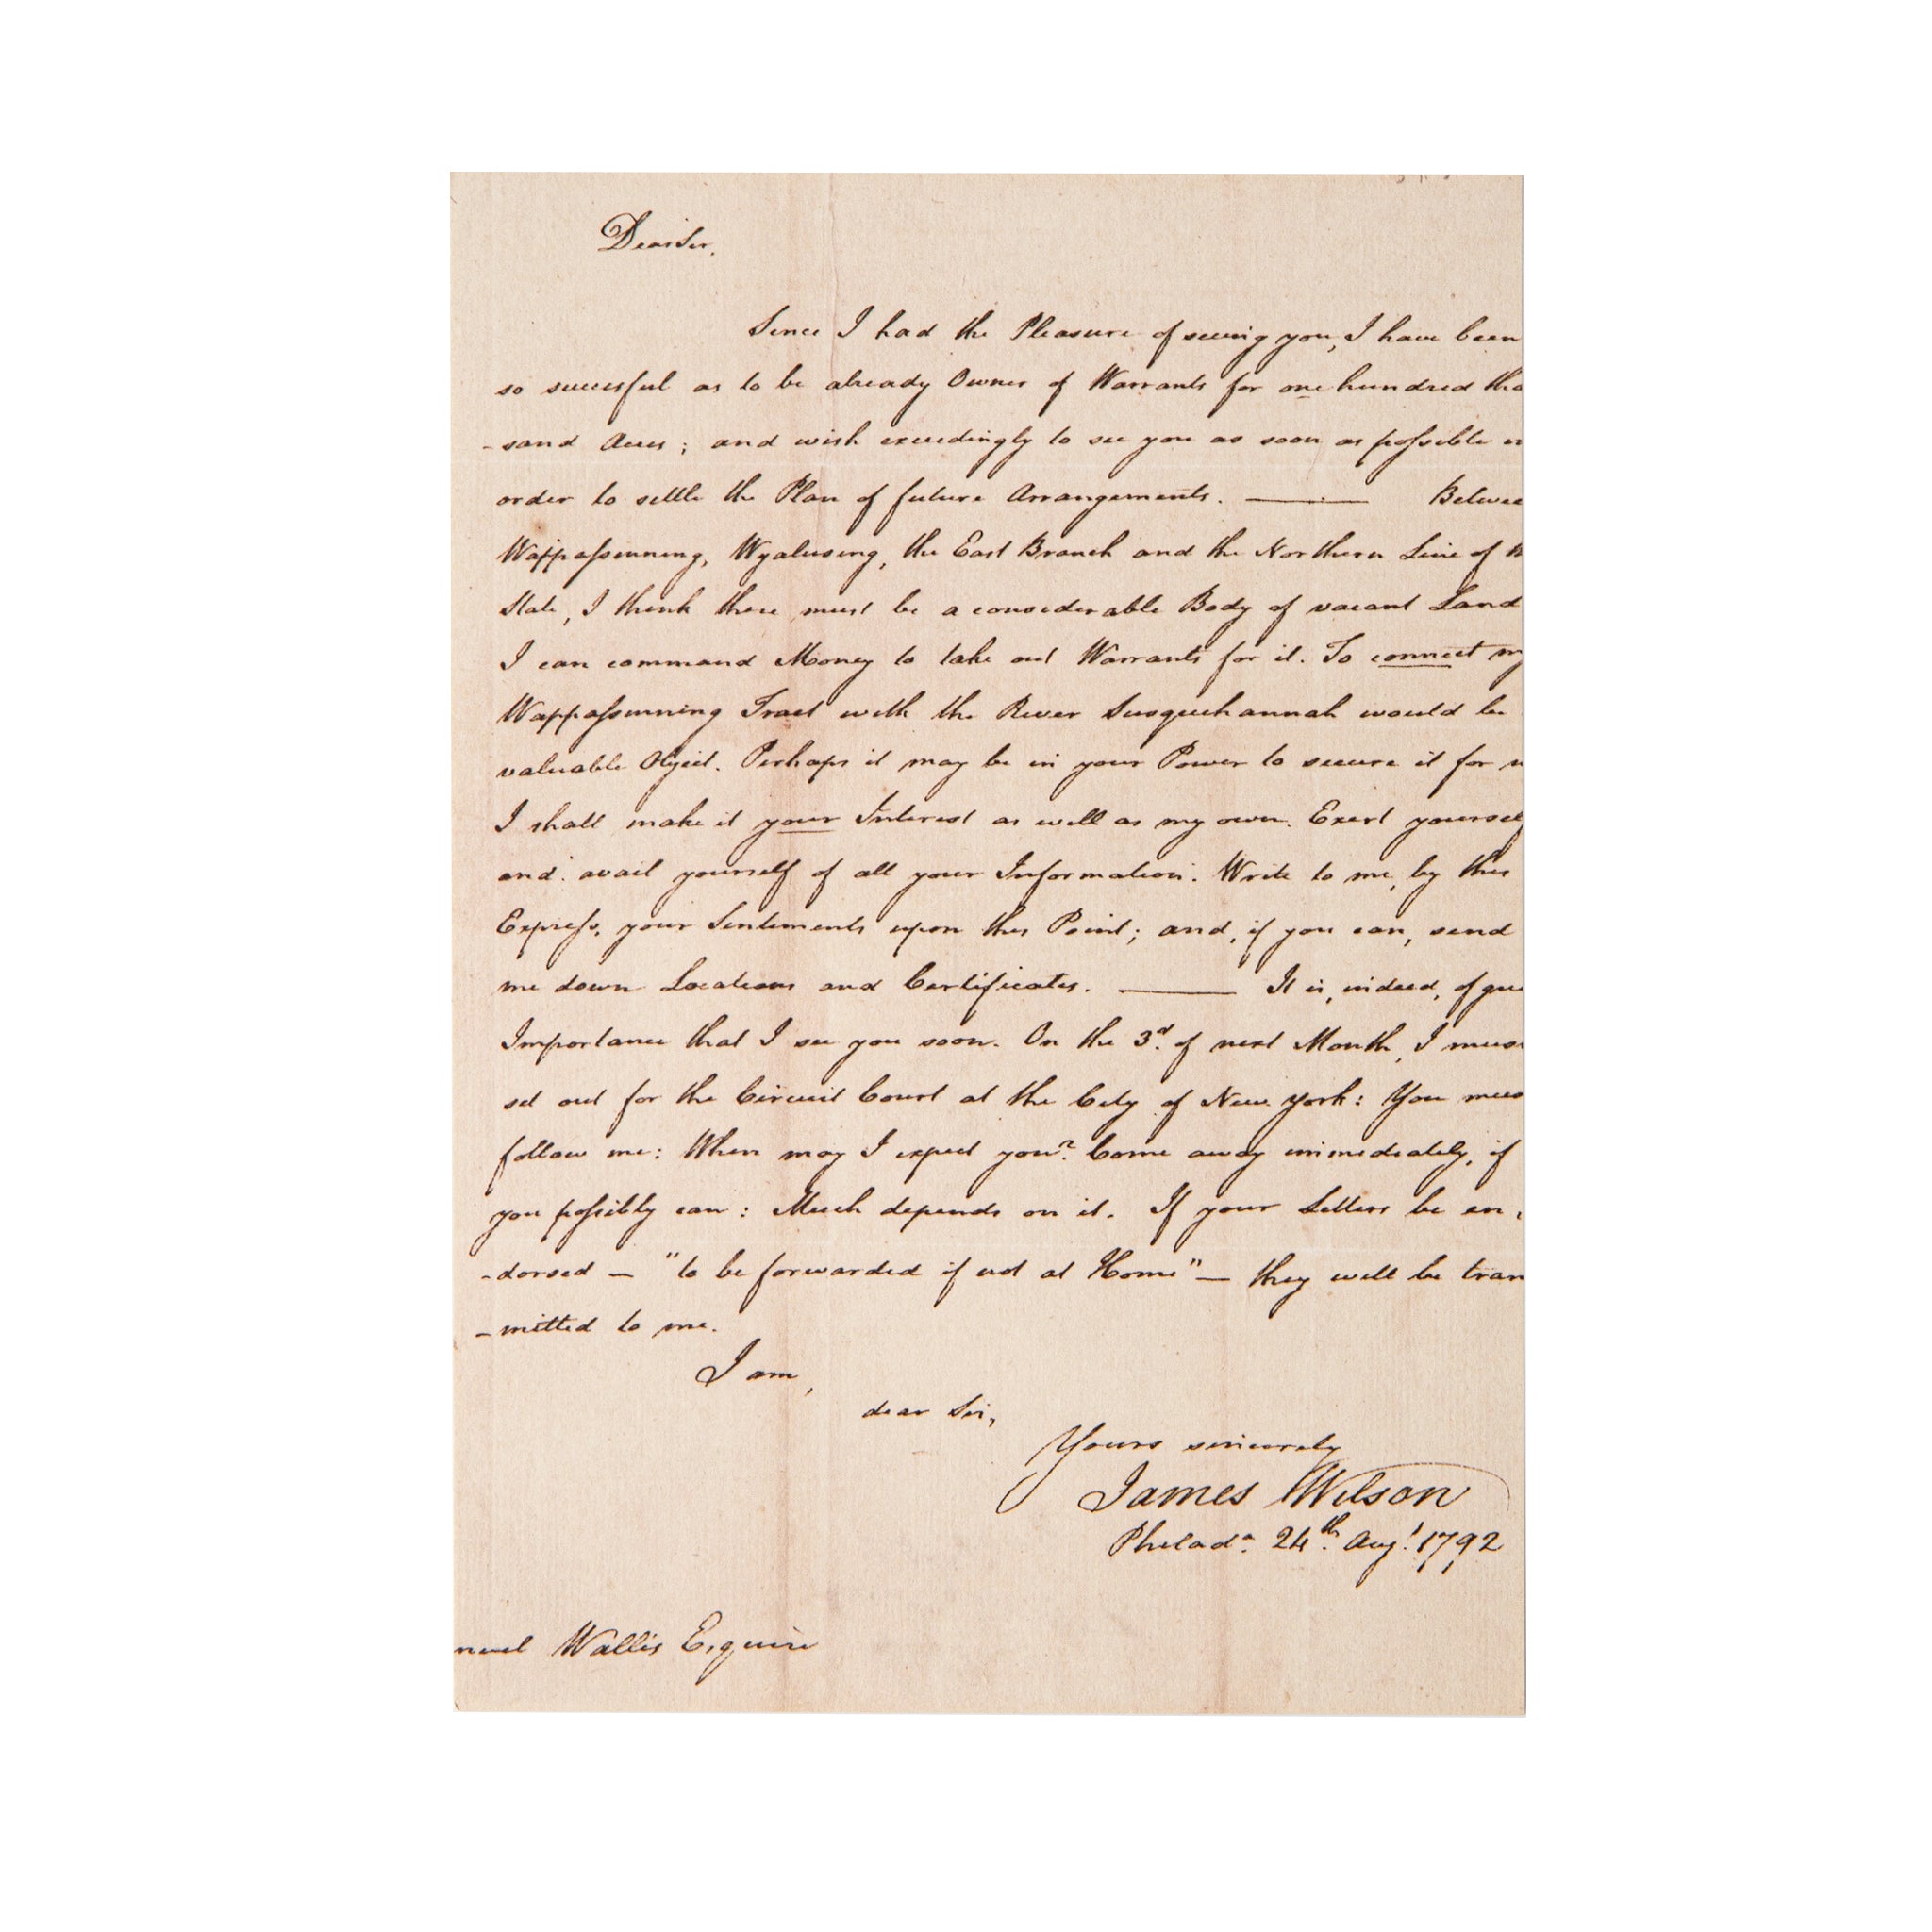 Dear Sir,
Since I had the Pleasure of seeing you, I have been
so succesful as to be already Owner of Warrants for one hundred tho
-sand Acres; and wish exceedingly to see you as soon as possible
order to settle the Plan of future Arrangements. —— Betwee
Wappassunning, Wyalusing, the East Branch and the Northern Line of
State, I think there must be a considerable Body of vacant Land
I can command Money to take out Warrants for it. To connect my
Wappassunning Tract with the River Susquehannah would be
valuable Object. Perhaps it may be in your Power to secure it for
I shall make it your Interest as well as my own. Exert yoursel
and avail yourself of all your Information. Write to me, by this
Express, your Sentiments upon this Point; and, if you can, send
me down Locations and Certificates. —— It is, indeed, of gre
Importance that I see you soon. On the 3d. of next Month, I mus
set out for the Circuit Court at the City of New York: You mus
follow me: When may I expect you? Come away immediately, if
you possibly can: Much depends on it. If your Letters be en-
-dorsed — "to be forwarded if not at Home" — they will be tran
-mitted to me.
I am,
dear Sir,
Yours sincerely
James Wilson
Philada. 24th. Augt. 1792
muel Wallis Esquire